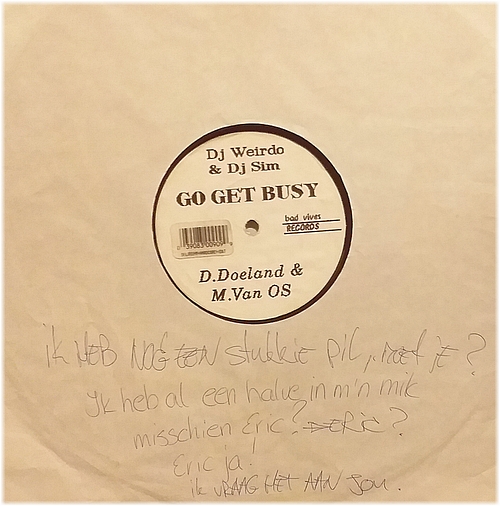 Dj Weirdo
& Dj Sim
GO GET BUSY
bad vives
RECORDS
D.Doeland &
M.Van OS
ik HEB NOG EEN stukkie pil, moet je?
Ik heb al een halve in m'n mik
misschien Eric? DERic?
Eric ja!
ik VRAAG HET AAN JOU.